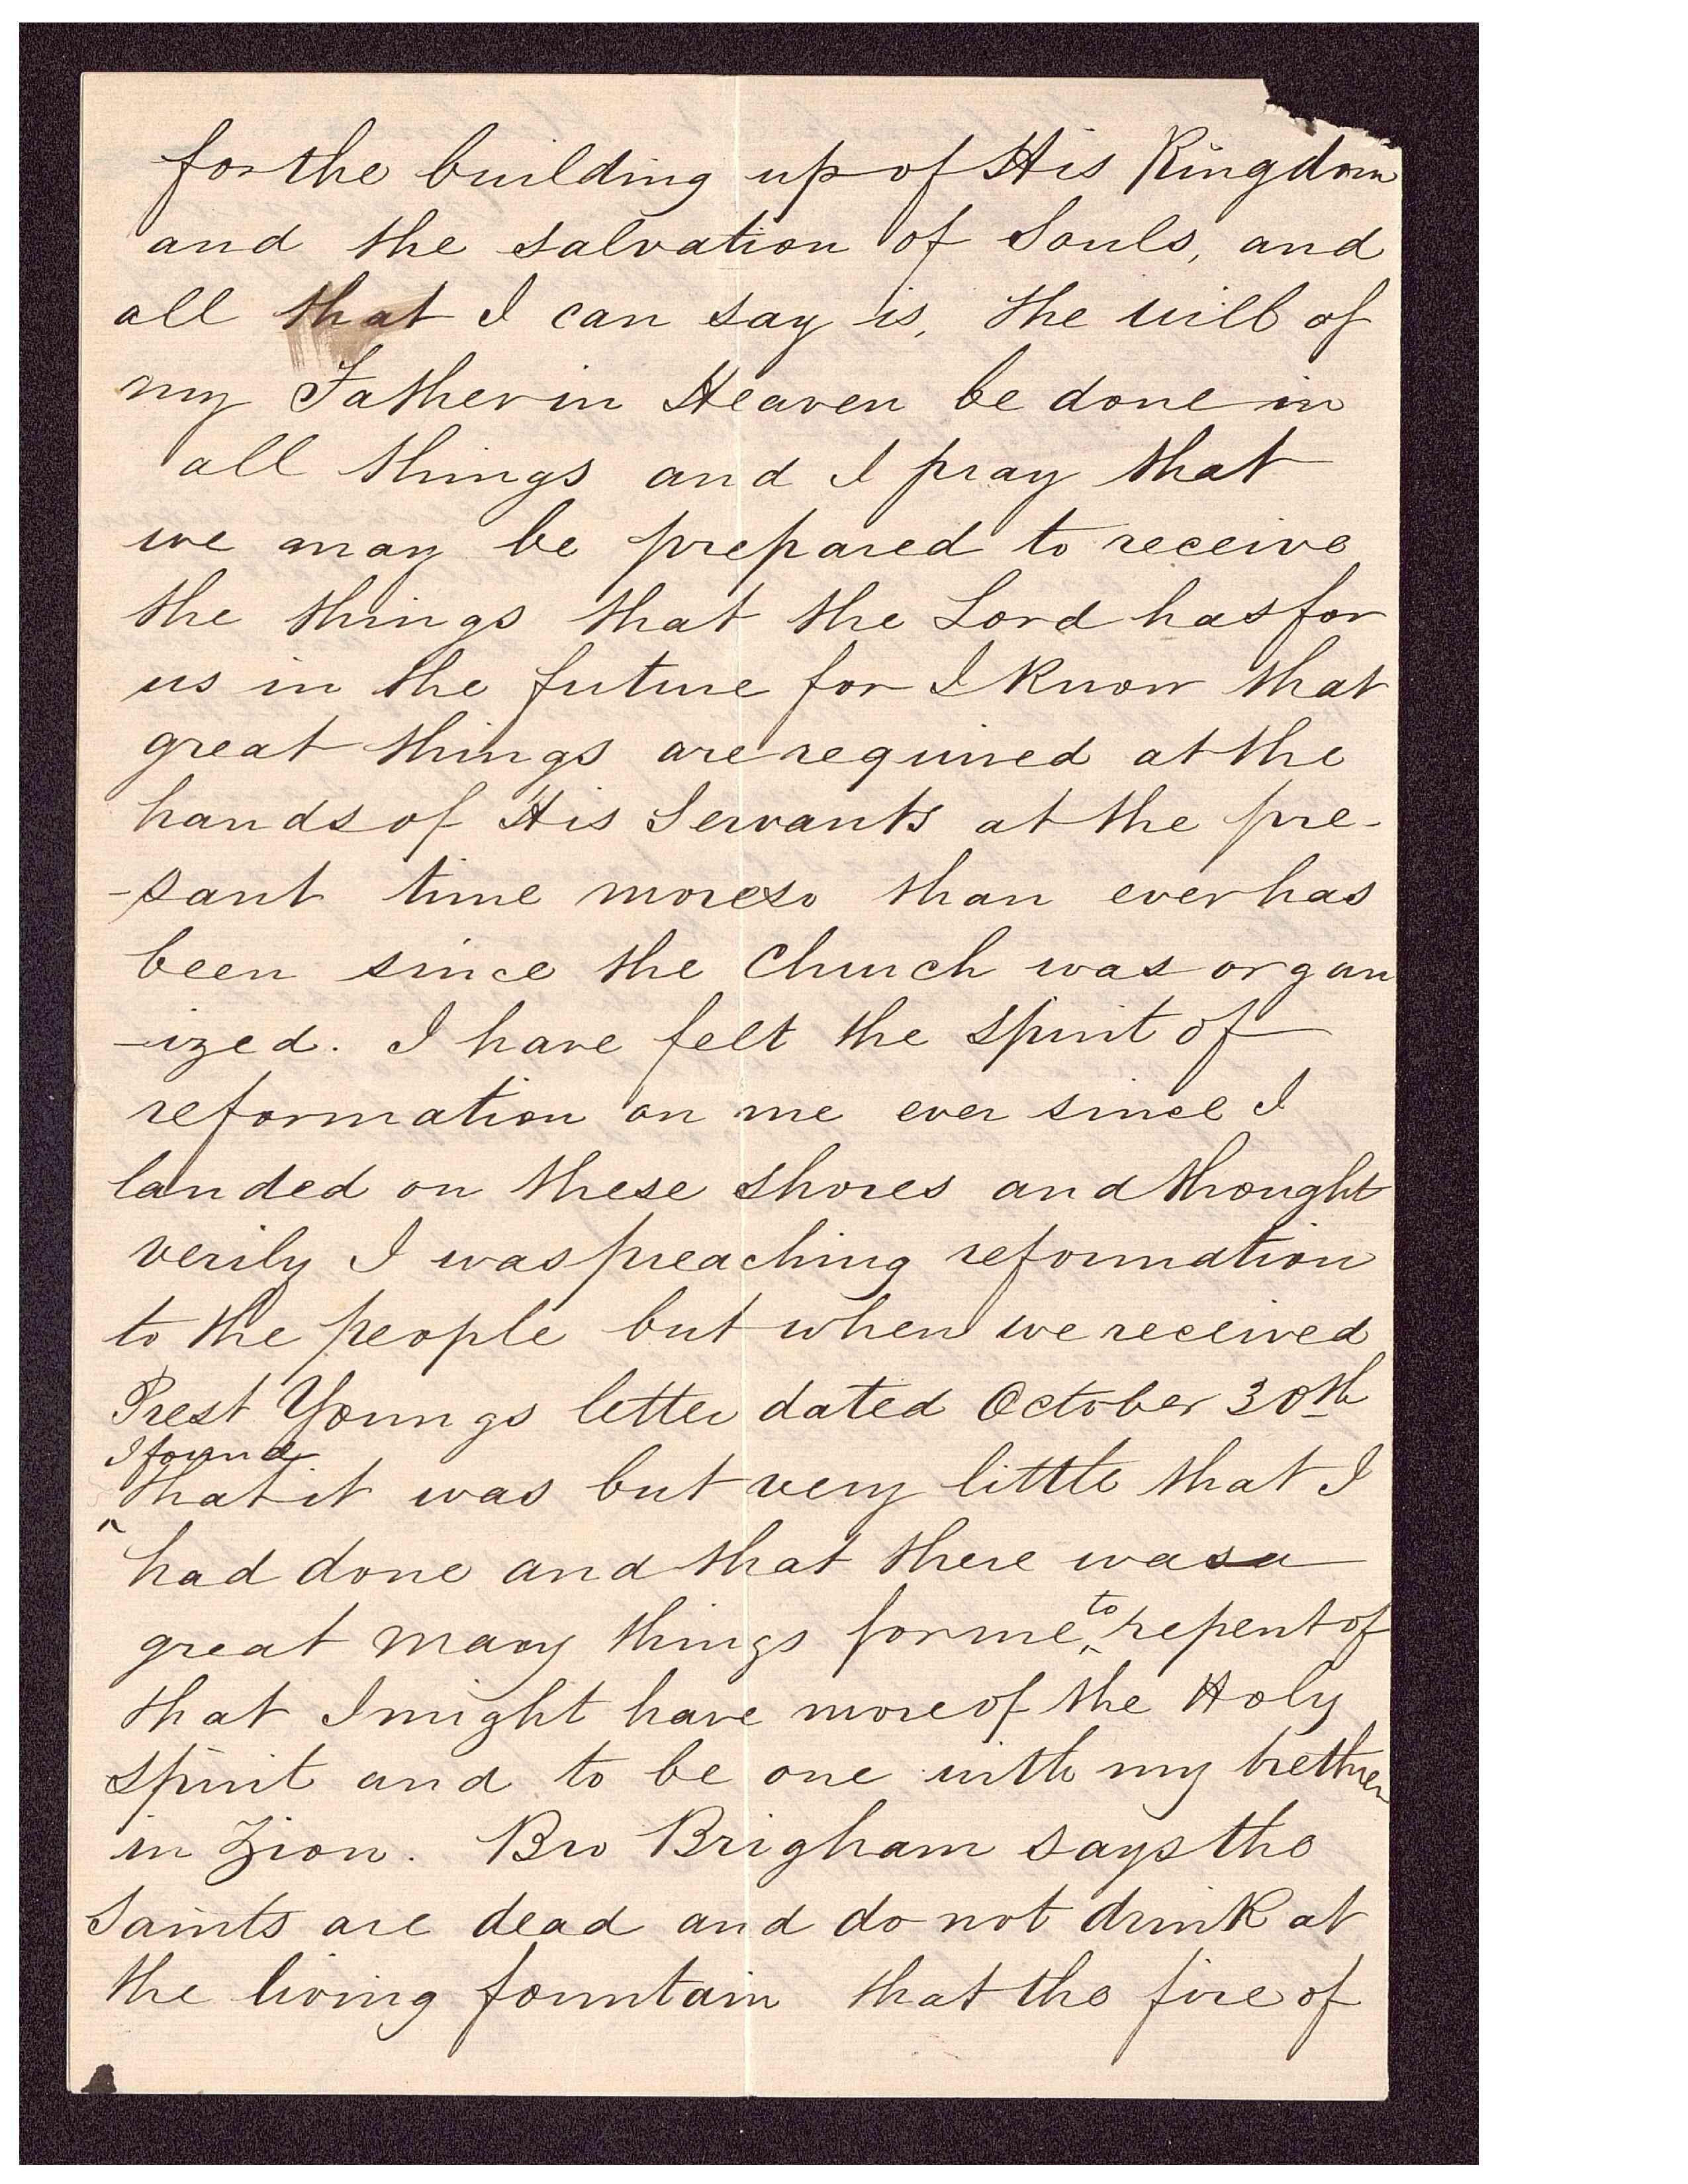 for the building up of His Kingdom
and the salvation of Souls, and
all that I can say is, the will of
my Father in Heaven be done in
all things and I pray that
we may be prepared to receive
the things that the Lord has for
us in the future for I know that
great things are required at the
hands of His Servants at the pre-
-sant time moreso than ever has
been since the Church was organ
-ized. I have felt the spirit of
reformation on me ever since I
landed on these shores and thought
verily I was preaching reformation
to the people but when we received
Prest Youngs letter dated October 30th
I found
^that it was but very little that I
had done and that there was a
great many things for me ^to repent of
that I might have more of the Holy
spirit and to be one with my brethren
in Zion. Bro Brigham says the
Saints are dead and do not drink at
the living fountain that the fire of